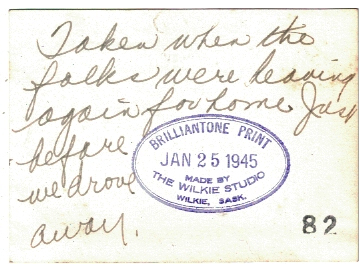 Taken when the
folks were leaving
again for home Just
before
we drove
away.
BRILLIANTONE PRINT
JAN 25 1945
MADE BY
THE WILKIE STUDIO
WILKIE, SASK.
82